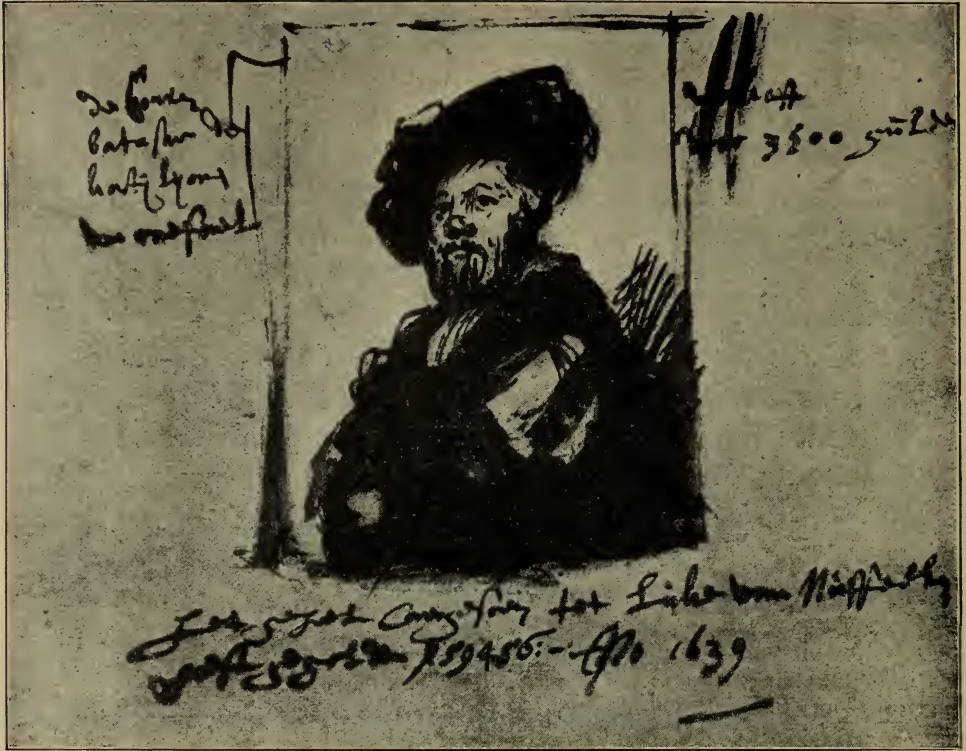 de Conte
batasar de
kastijlyone
van raefael
verkoft
voor 3500 gulden
het geheel Caergesoen tot Luke van Nuffeelen
heeft gegolden f59456:- Ano 1639